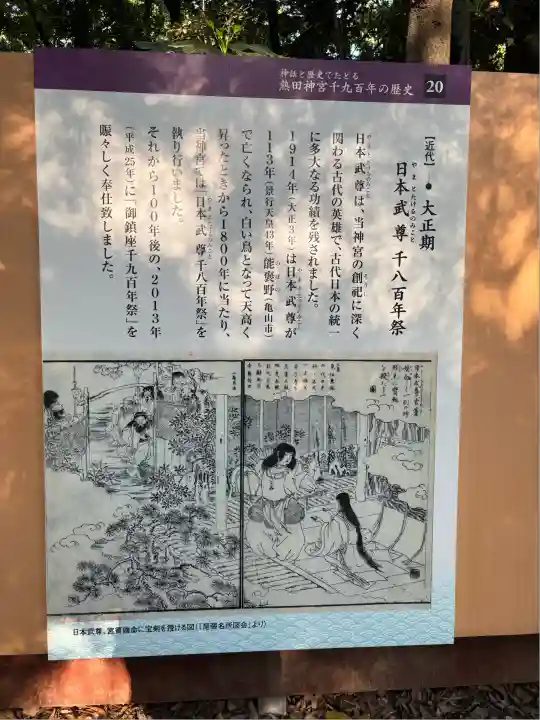 神話と歴史でたどる
熱田神宮千九百年の歴史 20
［近代］● 大正期
日本武尊 千八百年祭
やまとたけるのみこと
日本武尊は、当神宮の創祀に深く
関わる古代の英雄で、古代日本の統一
に多大なる功績を残されました。
1914年（大正3年）は日本武尊が
113年（景行天皇43年）能褒野（亀山市）
で亡くなられ、白い鳥となって天高く
昇ったときから1800年に当たり、
当神宮では「日本武尊千八百年祭」を
執り行いました。
それから100年後の、2013年
（平成25年）に「御鎮座千九百年祭」を
賑々しく奉仕致しました。
日本武尊、宮簀媛命に宝剣を授ける図（『尾張名所図会』より）